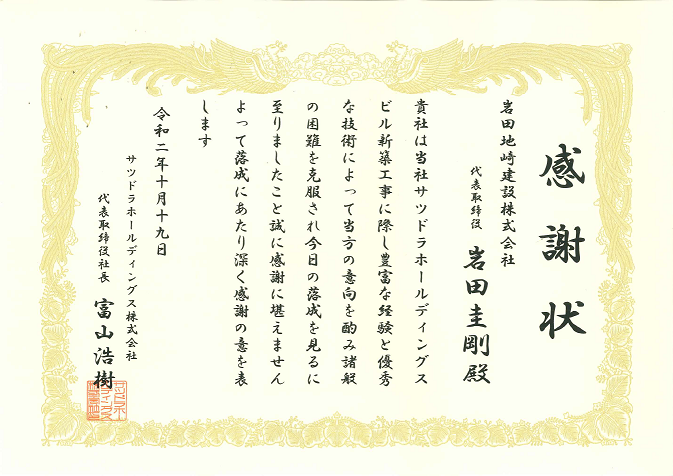 感謝状
岩田地崎建設株式会社
代表取締役 岩田圭剛殿
貴社は当社サツドラホールディングス
ビル新築工事に際し豊富な経験と優秀
な技術によって当方の意向を酌み諸般
の困難を克服され今日の落成を見るに
至りましたこと誠に感謝に堪えません
よって落成にあたり深く感謝の意を表
します
令和二年十月十九日
サツドラホールディングス株式会社
代表取締役社長 富山浩樹